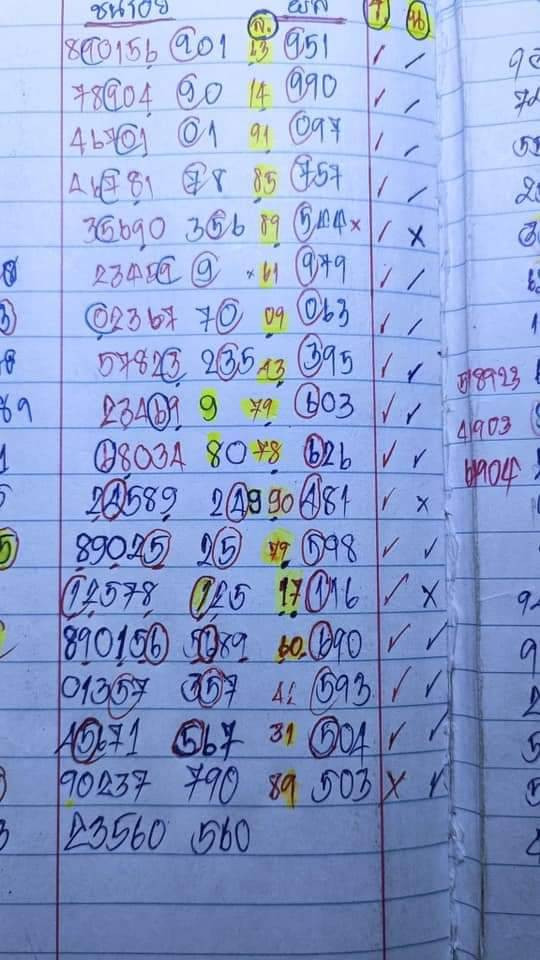 ชนรอย ล. ผล
890156 901 13 951
78904 90 14 990
46701 01 91 097
46781 78 85 757
35690 356 89 544 x
23459 9 x 61 979
02367 70 09 063
57823 235 43 395
23469 9 79 603
68034 80 78 626
24589 249 90 481
89025 25 79 598
12578 125 17 116
890156 5689 60 690
01357 357 593
45671 567 31 504
90237 790 89 503
23560 560
518923
4903
6904